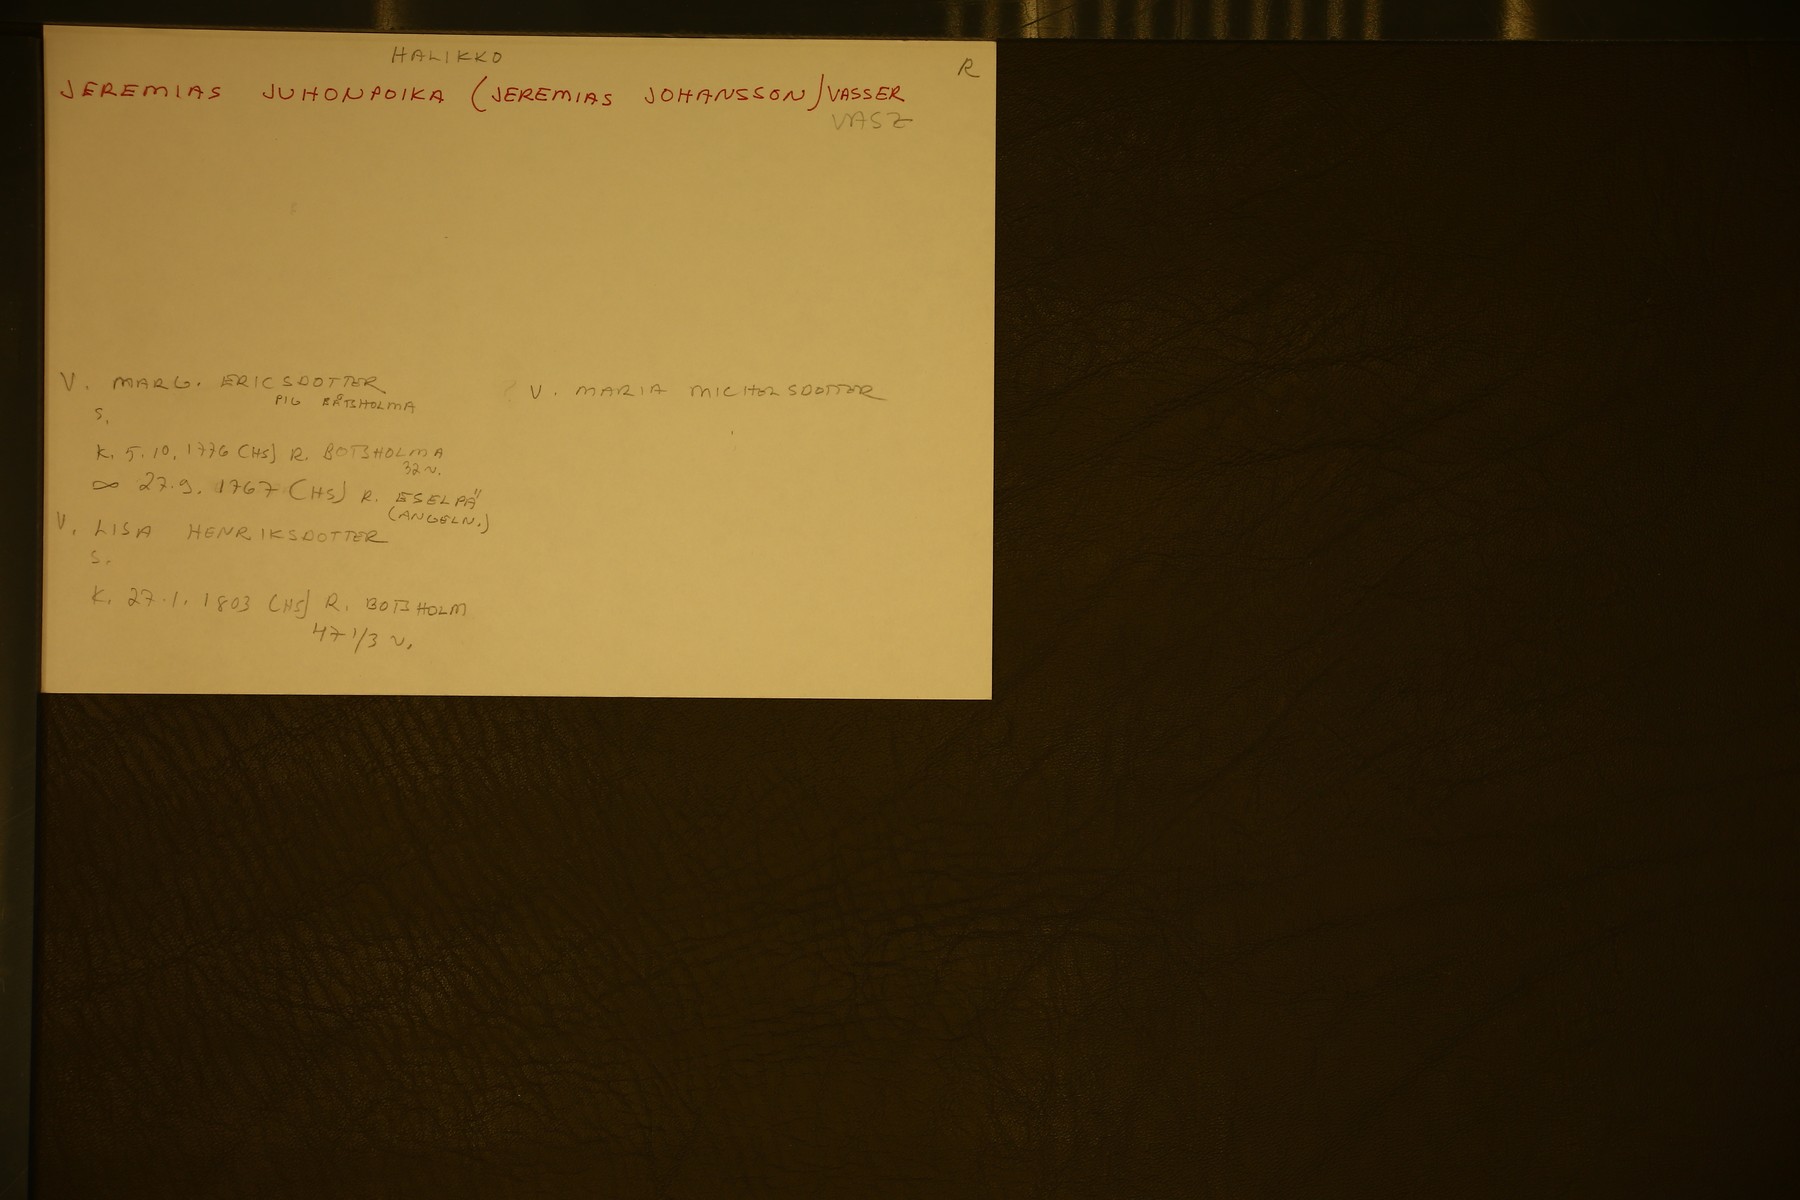 HALIKKO
R
JEREMIAS JUHONPOIKA (JEREMIAS JOHANSSON) VASSER
VASZ
V. MARG. ERICSDOTTER
PIG BÅTSHOLMA
S.
K. 5.10.1776 (HS) R. BOTSHOLMA
32 v.
∞ 27.9.1767 (HS) R. ESELPÄ
(ANGELN.)
V. LISA HENRIKSDOTTER
S.
K. 27.1.1803 (HS) R. BOTSHOLM
47 1/3 v.
V. MARIA MICHELSDOTTER